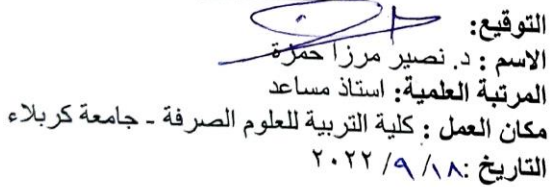 التوقيع:
الاسم : د. نصير مرزا حمزة
المرتبة العلمية: استاذ مساعد
مكان العمل : كلية التربية للعلوم الصرفة - جامعة كربلاء
التاريخ :١٨/ ٩/ ٢٠٢٢